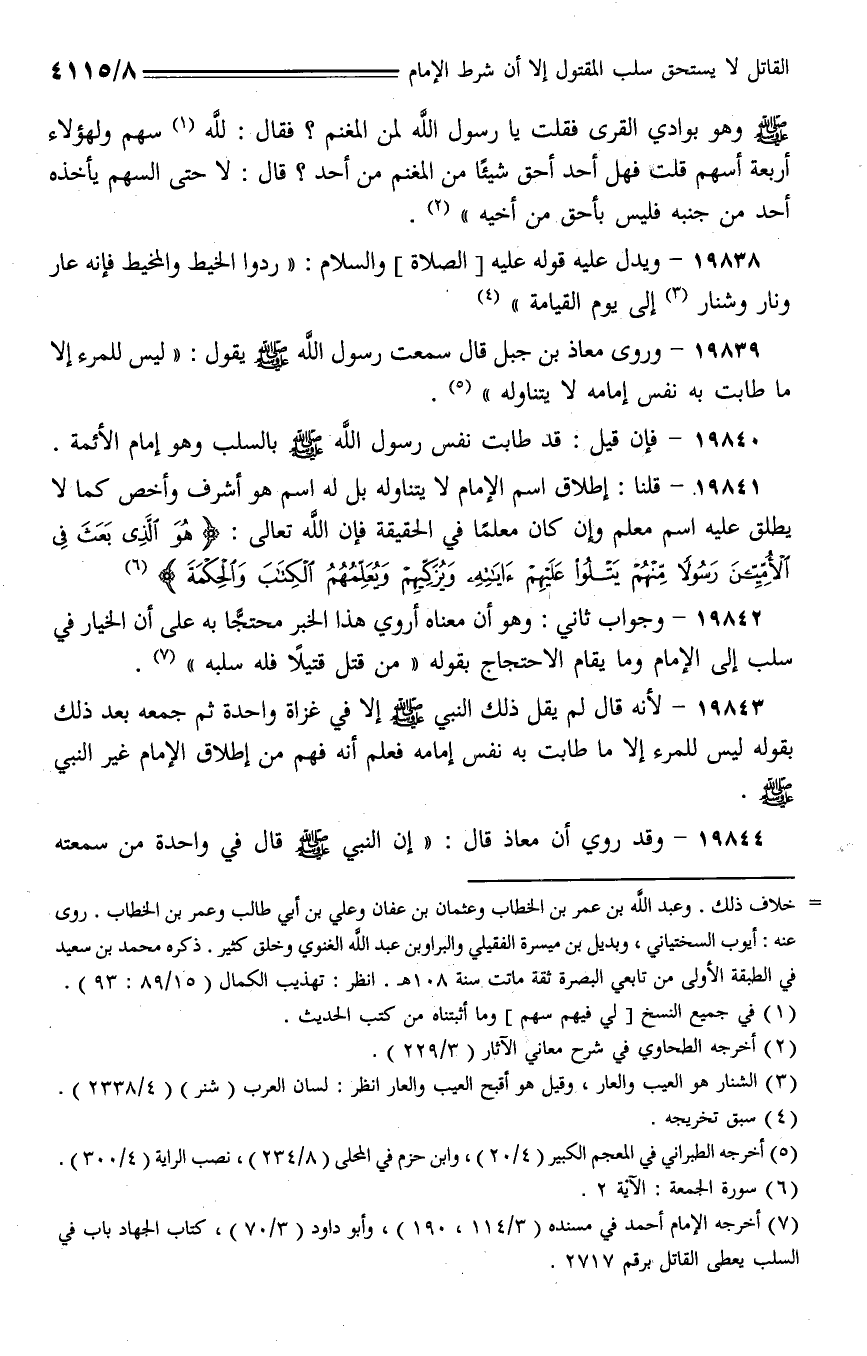 القاتل لا يستحق سلب المقتول إلا أن شرط الإمام ٤١١٥/٨
ﷺ وهو بوادي القرى فقلت يا رسول اللَّه لمن المغنم ؟ فقال : للَّه (١) سهم ولهؤلاء
أربعة أسهم قلت فهل أحد أحق شيئًا من المغنم من أحد ؟ قال : لا حتى السهم يأخذه
أحد من جنبه فليس بأحق من أخيه » (٢) .
١٩٨٣٨ - ويدل عليه قوله عليه [ الصلاة ] والسلام : « ردوا الخيط والمخيط فإنه عار
ونار وشنار (٣) إلى يوم القيامة » (٤)
١٩٨٣٩ - وروى معاذ بن جبل قال سمعت رسول اللَّه ﷺ يقول : « ليس للمرء إلا
ما طابت به نفس إمامه لا يتناوله » (٥) .
١٩٨٤٠ - فإن قيل : قد طابت نفس رسول اللَّه ﷺ بالسلب وهو إمام الأئمة .
١٩٨٤١ - قلنا : إطلاق اسم الإمام لا يتناوله بل له اسم هو أشرف وأخص كما لا
يطلق عليه اسم معلم وإن كان معلمًا في الحقيقة فإن اللَّه تعالى : ﴿ هُوَ ٱلَّذِى بَعَثَ فِى
ٱلْأُمِّيِّـۧنَ رَسُولًا مِّنْهُمْ يَتْلُوا۟ عَلَيْهِمْ ءَايَـٰتِهِۦ وَيُزَكِّيهِمْ وَيُعَلِّمُهُمُ ٱلْكِتَـٰبَ وَٱلْحِكْمَةَ ﴾ (٦)
١٩٨٤٢ - وجواب ثاني : وهو أن معناه أروي هذا الخبر محتجًّا به على أن الخيار في
سلب إلى الإمام وما يقام الاحتجاج بقوله « من قتل قتيلًا فله سلبه » (٧) .
١٩٨٤٣ - لأنه قال لم يقل ذلك النبي ﷺ إلا في غزاة واحدة ثم جمعه بعد ذلك
بقوله ليس للمرء إلا ما طابت به نفس إمامه فعلم أنه فهم من إطلاق الإمام غير النبي
ﷺ .
١٩٨٤٤ - وقد روي أن معاذ قال : « إن النبي ﷺ قال في واحدة من سمعته
= خلاف ذلك . وعبد اللَّه بن عمر بن الخطاب وعثمان بن عفان وعلي بن أبي طالب وعمر بن الخطاب . روى
عنه : أيوب السختياني ، وبديل بن ميسرة الفقيلي والبراوبن عبد اللَّه الغنوي وخلق كثير . ذكره محمد بن سعيد
في الطبقة الأولى من تابعي البصرة ثقة ماتت سنة ١٠٨هـ . انظر : تهذيب الكمال ( ٨٩/١٥ : ٩٣ ) .
(١) في جميع النسخ [ لي فيهم سهم ] وما أثبتناه من كتب الحديث .
(٢) أخرجه الطحاوي في شرح معاني الآثار ( ٢٢٩/٣ ) .
(٣) الشنار هو العيب والعار ، وقيل هو أقبح العيب والعار انظر : لسان العرب ( شنر ) ( ٢٣٣٨/٤ ) .
(٤) سبق تخريجه .
(٥) أخرجه الطبراني في المعجم الكبير ( ٢٠/٤ ) ، وابن حزم في المحلى ( ٢٣٤/٨ ) ، نصب الراية ( ٣٠٠/٤ ) .
(٦) سورة الجمعة : الآية ٢ .
(٧) أخرجه الإمام أحمد في مسنده ( ١١٤/٣ ، ١٩٠ ) ، وأبو داود ( ٧٠/٣ ) ، كتاب الجهاد باب في
السلب يعطى القاتل برقم ٢٧١٧ .